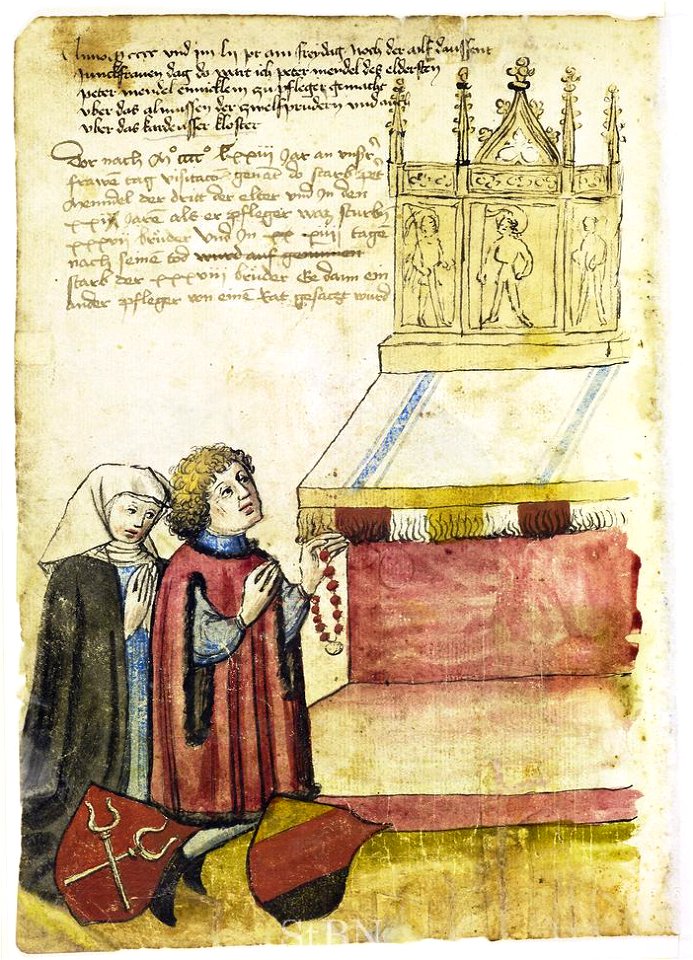 Anno m cccc und im lii jar am freydag noch der ailf daussent
Junckfrauen dag do wart ich peter mendel des eldersten
peter mendel einicklein zu pfleger gemacht
uber das almussen der zwelfprudern und auch
uber das kardeusser kloster
Dor nach Mº ccccº lxxiiij Jar an unser
frawē tag visitaco genant do starb pet
Mendel der dritt der elter und In den
xxij Jare als er pfleger waz sturbn
xxxvij bruder und In xx xiiij tagē
nach seinē tod wurd auf genumen
starb der xxxviij bruder Ee dann ein
ander pfleger von einē Rat gesaczt wurd
StBN